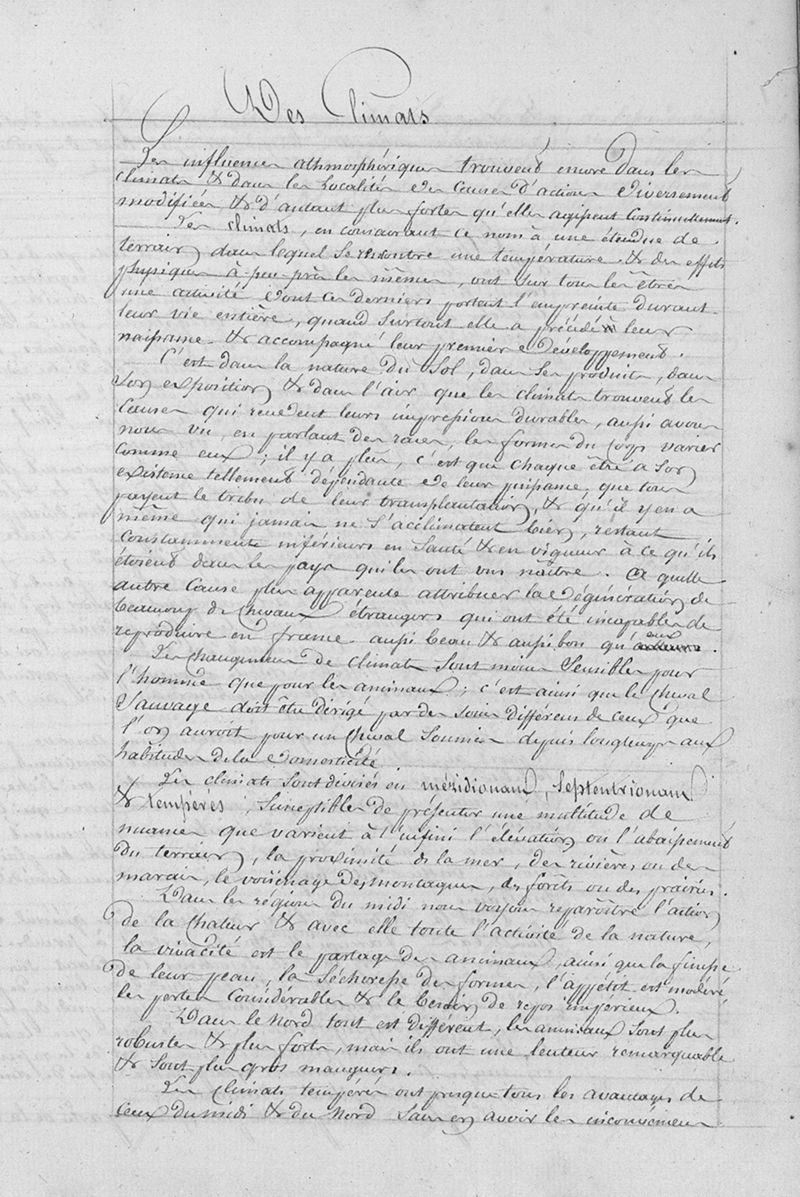 Des Climats
Les influences athmosphériques trouvent encore dans les
climats & dans les localités des causes d'action diversement
modifiées & d'autant plus fortes qu'elles agissent continuellement.
Les climats, en consacrant ce nom à une étendue de
terrain dans lequel se rencontre une température & des effets
physiques à-peu-près les mêmes, ont sur tous les êtres
une activité dont ces derniers portent l'empreinte durant
leur vie entière, quand surtout elle a précédé leur
naissance & accompagné leur premier développement.
C'est dans la nature du Sol, dans ses produits, dans
son exposition & dans l'air que les climats trouvent les
causes qui rendent leurs impressions durables, aussi avons
nous vu, en parlant des races, les formes du corps varier
comme eux; il y a plus, c'est que chaque être a son
existence tellement dépendante de leur puissance, que tous
payent le tribu de leur transplantation, & qu'il y en a
même qui jamais ne s'acclimatent bien, restant
constamment inférieurs en santé & en vigueur à ce qu'ils
étoient dans les pays qui les ont vus naître. A quelle
autre cause plus apparente attribuer la dégénération de
beaucoup de chevaux étrangers qui ont été incapables de
reproduire en france aussi beau & aussi bon qu'eux.
Les changemens de climats sont moins sensibles pour
l'homme que pour les animaux; c'est ainsi que le cheval
sauvage doit être dirigé par des soins différens de ceux que
l'on auroit pour un cheval soumis depuis longtemps aux
habitudes de la domesticité.
Les climats sont divisés en méridionaux, septentrionaux
& tempérés, susceptibles de présenter une multitude de
nuances que varient à l'infini l'élévation ou l'abaissement
du terrain, la proximité de la mer, des rivières ou des
marais, le voisinage des montagnes, des forêts ou des prairies.
Dans les régions du midi nous voyons reparoître l'action
de la chaleur & avec elle toute l'activité de la nature,
la vivacité est le partage des animaux, ainsi que la finesse
de leur peau, la sécheresse des formes, l'appétit est modéré,
les pertes considérables & le besoin de repos impérieux.
Dans le Nord tout est différent, les animaux sont plus
robustes & plus forts, mais ils ont une lenteur remarquable
& sont plus gros mangeurs.
Les climats tempérés ont presque tous les avantages de
ceux du midi & du Nord sans en avoir les inconvéniens